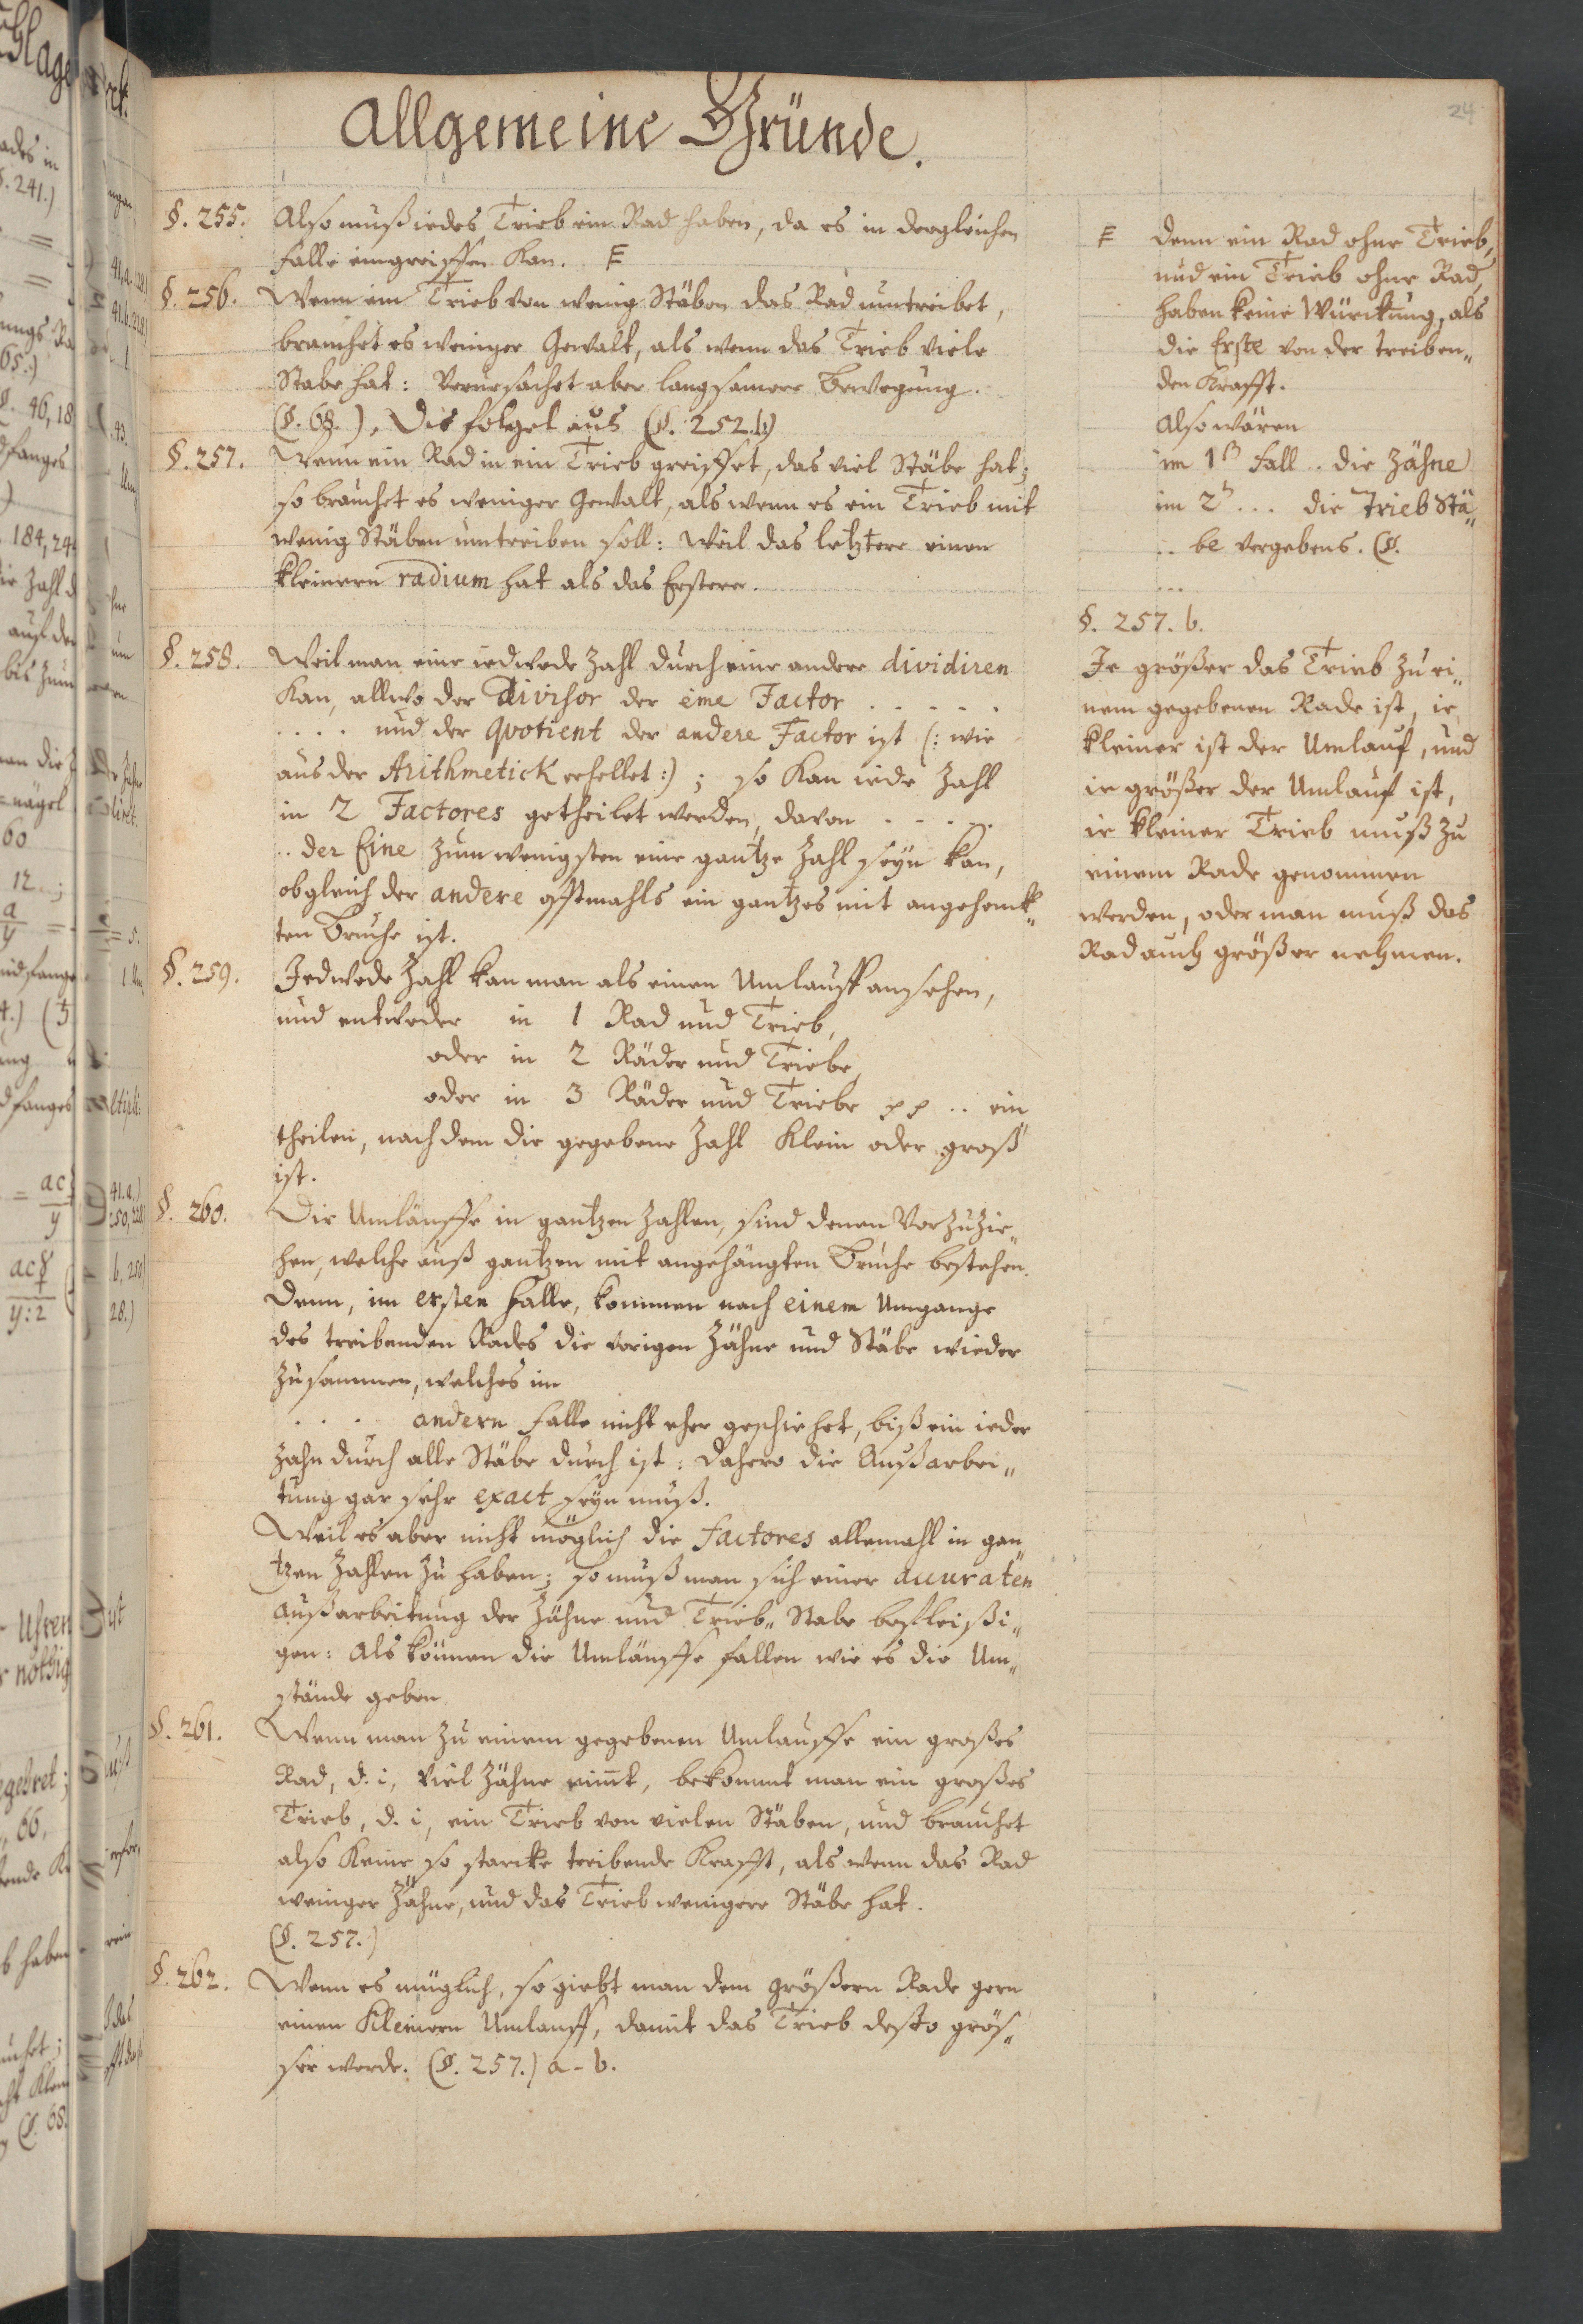 Allgemeine Gründe.
24
§. 255. Also muß iedes Trieb ein Rad haben, da es in dergleichen
Falle eingreiffen Kan. F
§. 256. Wenn ein Trieb von wenig Stäben das Rad umtreibet,
brauchet es weniger Gewalt, als wenn das Trieb viele
Stabe hat: Verursachet aber langsamere Bewegung.
(§. 68.), Dis folget aus (§. 252.b)
§. 257. Wenn ein Rad in ein Trieb greiffet, das viel Stäbe hat;
so brauchet es weniger Gewalt, als wenn es ein Trieb mit
wenig Stäben umtreiben soll: Weil das letztere einen
kleinern radium hat als das Erstere.
§. 258. Weil man eine iedwede Zahl durch eine andere dividiren
Kan, allwo der divisor der eine Factor . . . . .
. . . . und der Qvotient der andere Factor ist (: wie
aus der Arithmetick erhellet :) ; so Kan iede Zahl
in 2 Factores getheilet werden, davon . . . . .
.. der Eine zum wenigsten eine gantze Zahl seyn kan,
obgleich der andere offtmahls ein gantzes mit angehenck„
ten Bruche ist.
§. 259. Jedwede Zahl kan man als einen Umlauff ansehen,
und entweder in 1 Rad und Trieb,
oder in 2 Räder und Triebe,
oder in 3 Räder und Triebe pp .. ein
theilen, nach dem die gegebene Zahl Klein oder groß
ist.
§. 260. Die Umläuffe in gantzen Zahlen, sind denen Vorzuzie„
hen, welche auß gantzen mit angehängten Bruche bestehen.
Denn, im ersten Falle, kommen nach einem Umgange
des treibenden Rades die vorigen Zähne und Stäbe wieder
zusammen, welches im
. . . andern Falle nicht eher geschiehet, biß ein ieder
Zahn durch alle Stäbe durch ist: Dahero die Außarbei„
tung gar sehr exact seyn muß.
Weil es aber nicht möglich die Factores allemahl in gan„
tzen Zahlen zu haben; so muß man sich einer accuraten
Außarbeitung der Zähne und Trieb„ Stabe befleißi„
gen: Als können die Umläuffe fallen wie es die Um„
stände geben
§. 261. Wenn man zu einem gegebenen Umlauffe ein großes
Rad, d. i, viel Zähne nim̄t, bekommt man ein großes
Trieb, d. i, ein Trieb von vielen Stäben, und brauchet
also Keine so starcke treibende Krafft, als wenn das Rad
weniger Zähne, und das Trieb wenigere Stäbe hat.
(§. 257.)
§. 262. Wenn es müglich, so giebt man dem größern Rade gern
einen Kleinern Umlauff, damit das Trieb desto grös„
ser werde. (§. 257.) a - b.
F Denn ein Rad ohne Trieb,
und ein Trieb ohne Rad,
haben keine Würckung, als
die Erste von der treiben„
den Krafft.
Also wären
im 1 Fall .. die Zähne
im 2 ... die Trieb Stä„
.. be vergebens. (§.
...
§. 257. b.
Je größer das Trieb zu ei„
nem gegebenen Rade ist, ie
kleiner ist der Umlauf, und
ie größer der Umlauf ist,
ie kleiner Trieb muß zu
einem Rade genommen
werden, oder man muß das
Rad auch größer nehmen.